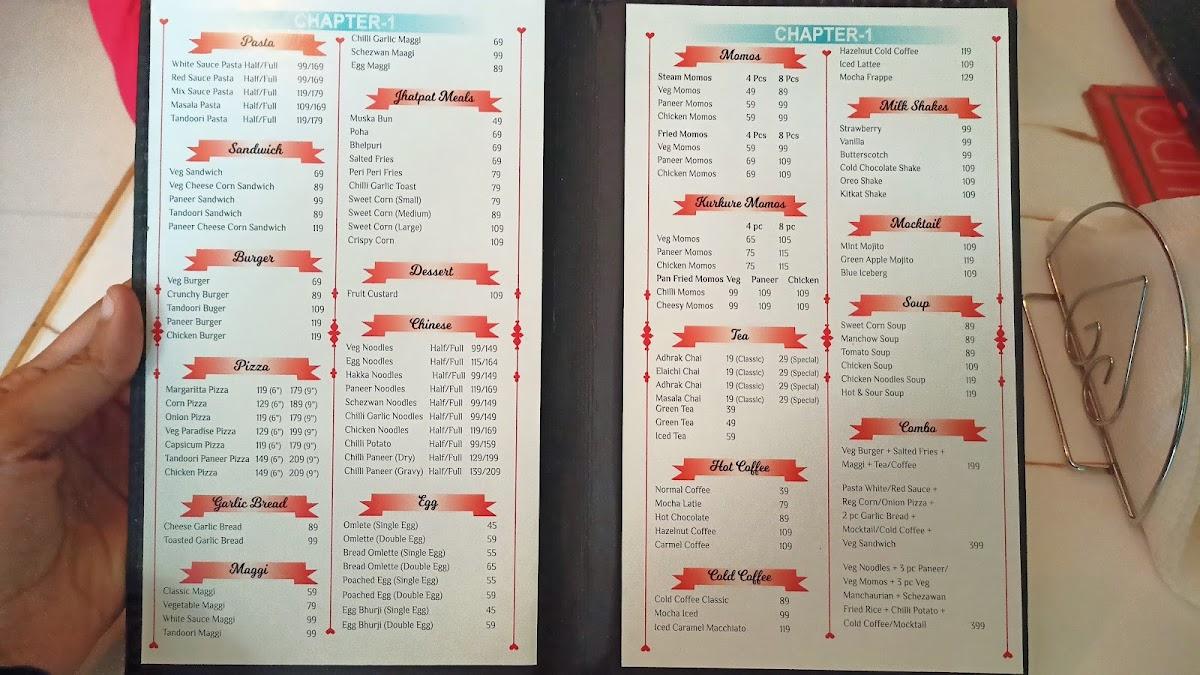 CHAPTER-1
Pasta
White Sauce Pasta Half/Full 99/169
Red Sauce Pasta Half/Full 99/169
Mix Sauce Pasta Half/Full 119/179
Masala Pasta Half/Full 109/169
Tandoori Pasta Half/Full 119/179
Sandwich
Veg Sandwich 69
Veg Cheese Corn Sandwich 89
Paneer Sandwich 99
Tandoori Sandwich 89
Paneer Cheese Corn Sandwich 119
Burger
Veg Burger 69
Crunchy Burger 89
Tandoori Buger 109
Paneer Burger 119
Chicken Burger 119
Pizza
Margaritta Pizza 119 (6") 179 (9")
Corn Pizza 129 (6") 189 (9")
Onion Pizza 119 (6") 179 (9")
Veg Paradise Pizza 129 (6") 199 (9")
Capsicum Pizza 119 (6") 179 (9")
Tandoori Paneer Pizza 149 (6") 209 (9")
Chicken Pizza 149 (6") 209 (9")
Garlic Bread
Cheese Garlic Bread 89
Toasted Garlic Bread 99
Maggi
Classic Maggi 59
Vegetable Maggi 79
White Sauce Maggi 99
Tandoori Maggi 99
Chilli Garlic Maggi 69
Schezwan Maagi 99
Egg Maggi 89
Jhatpat Meals
Muska Bun 49
Poha 69
Bhelpuri 69
Salted Fries 69
Peri Peri Fries 79
Chilli Garlic Toast 79
Sweet Corn (Small) 79
Sweet Corn (Medium) 89
Sweet Corn (Large) 109
Crispy Corn 109
Dessert
Fruit Custard 109
Chinese
Veg Noodles Half/Full 99/149
Egg Noodles Half/Full 115/164
Hakka Noodles Half/Full 99/149
Paneer Noodles Half/Full 119/169
Schezwan Noodles Half/Full 99/149
Chilli Garlic Noodles Half/Full 99/149
Chicken Noodles Half/Full 119/169
Chilli Potato Half/Full 99/159
Chilli Paneer (Dry) Half/Full 129/199
Chilli Paneer (Gravy) Half/Full 139/209
Egg
Omlete (Single Egg) 45
Omlette (Double Egg) 59
Bread Omlette (Single Egg) 55
Bread Omlette (Double Egg) 65
Poached Egg (Single Egg) 55
Poached Egg (Double Egg) 59
Egg Bhurji (Single Egg) 45
Egg Bhurji (Double Egg) 59
CHAPTER-1
Momos
Steam Momos 4 Pcs 8 Pcs
Veg Momos 49 89
Paneer Momos 59 99
Chicken Momos 59 99
Fried Momos 4 Pcs 8 Pcs
Veg Momos 59 99
Paneer Momos 69 109
Chicken Momos 69 109
Kurkure Momos
4 pc 8 pc
Veg Momos 65 105
Paneer Momos 75 115
Chicken Momos 75 115
Pan Fried Momos Veg Paneer Chicken
Chilli Momos 99 109 109
Cheesy Momos 99 109 109
Tea
Adhrak Chai 19 (Classic) 29 (Special)
Elaichi Chai 19 (Classic) 29 (Special)
Adhrak Chai 19 (Classic) 29 (Special)
Masala Chai 19 (Classic) 29 (Special)
Green Tea 39
Green Tea 49
Iced Tea 59
Hot Coffee
Normal Coffee 39
Mocha Latie 79
Hot Chocolate 89
Hazelnut Coffee 109
Carmel Coffee 109
Cold Coffee
Cold Coffee Classic 89
Mocha Iced 99
Iced Caramel Macchiato 119
Hazelnut Cold Coffee 119
Iced Lattee 109
Mocha Frappe 129
Milk Shakes
Strawberry 99
Vanilla 99
Butterscotch 99
Cold Chocolate Shake 109
Oreo Shake 109
Kitkat Shake 109
Mocktail
Mint Mojito 109
Green Apple Mojito 119
Blue Iceberg 109
Soup
Sweet Corn Soup 89
Manchow Soup 89
Tomato Soup 89
Chicken Soup 109
Chicken Noodles Soup 119
Hot & Sour Soup 119
Combo
Veg Burger + Salted Fries +
Maggi + Tea/Coffee 199
Pasta White/Red Sauce +
Reg Corn/Onion Pizza +
2 pc Garlic Bread +
Mocktail/Cold Coffee +
Veg Sandwich 399
Veg Noodles + 3 pc Paneer/
Veg Momos + 3 pc Veg
Manchaurian + Schezawan
Fried Rice + Chilli Potato +
Cold Coffee/Mocktail 399